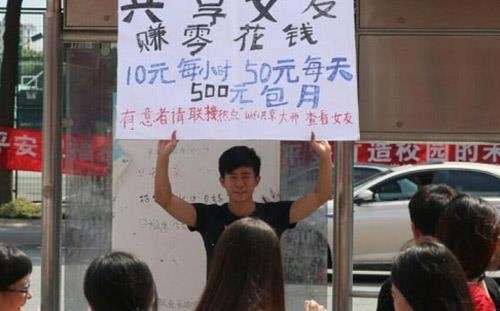 共享女友
赚零花钱
10元每小时 50元每天
500元包月
有意者请联接热点"wifi共享大师 查看女友
平安
造校园的未